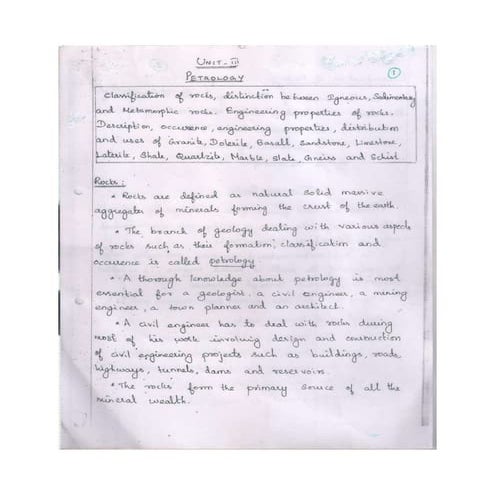 UNIT - III
PETROLOGY
1
Classification of rocks, distinction between Igneous, Sedimentary
and Metamorphic rocks. Engineering properties of rocks.
Description, occurence, engineering properties, distribution
and uses of Granite, Dolerite, Basalt, Sandstone, Limestone,
Laterite, Shale, Quartzite, Marble, Slate, Gneiss and Schist
Rocks:
• Rocks are defined as natural solid massive
aggregates of minerals forming the crust of the earth.
• The branch of geology dealing with various aspects
of rocks such as their formation, classification and
occurence is called petrology.
• A thorough knowledge about petrology is most
essential for a geologist, a civil engineer, a mining
engineer, a town planner and an architect.
• A civil engineer has to deal with rocks during
most of his work involving design and construction
of civil engineering projects such as buildings, roads,
highways, tunnels, dams and reservoirs.
• The rocks form the primary source of all the
mineral wealth.